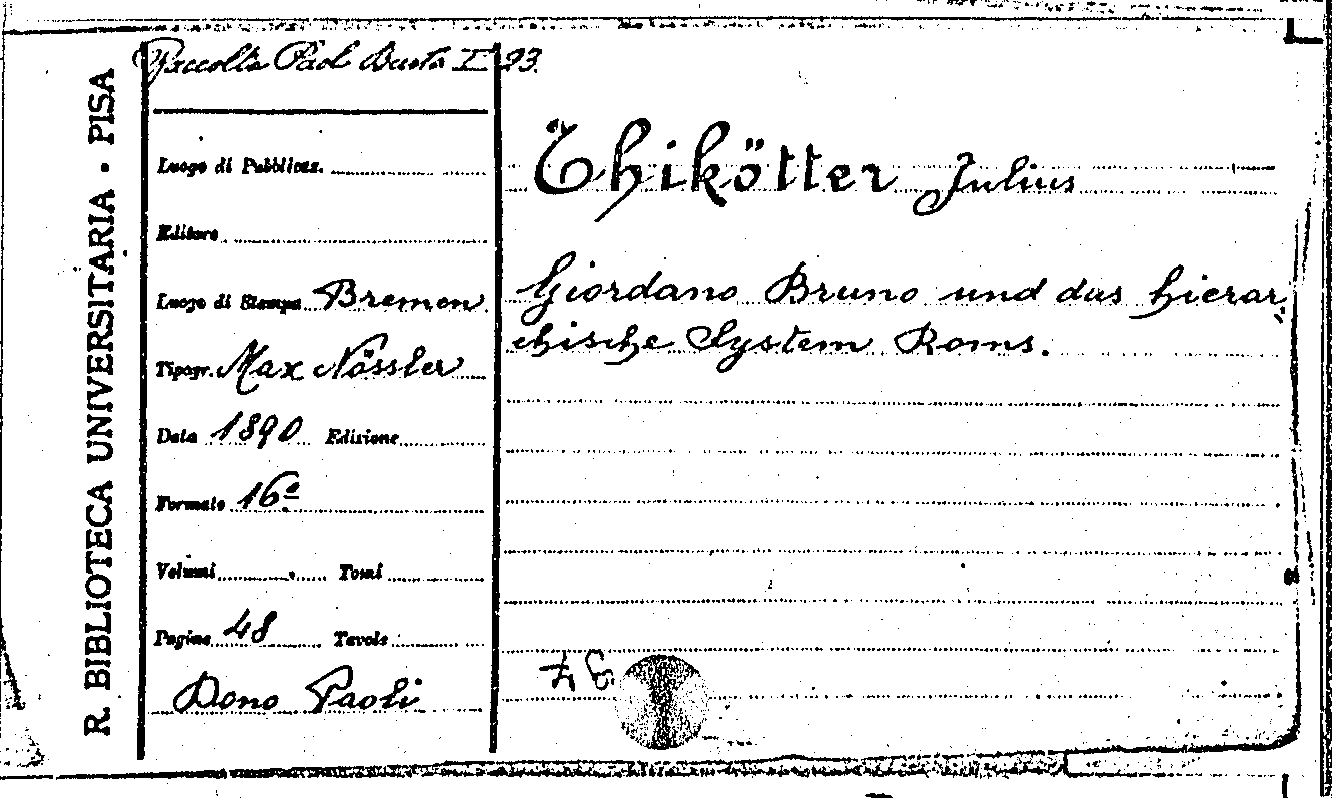 R. BIBLIOTECA UNIVERSITARIA - PISA
Raccolta Paol Busta I 23.
Luogo di Pubblicaz.
Editore
Luogo di Stampa Bremen
Tipogr. Max Nössler
Data 1890 Edizione
Formato 16º
Volumi Tomi
Pagine 48 Tavole
Dono Paoli
Thikötter Julius
Giordano Bruno und das hierar
chische System Roms.